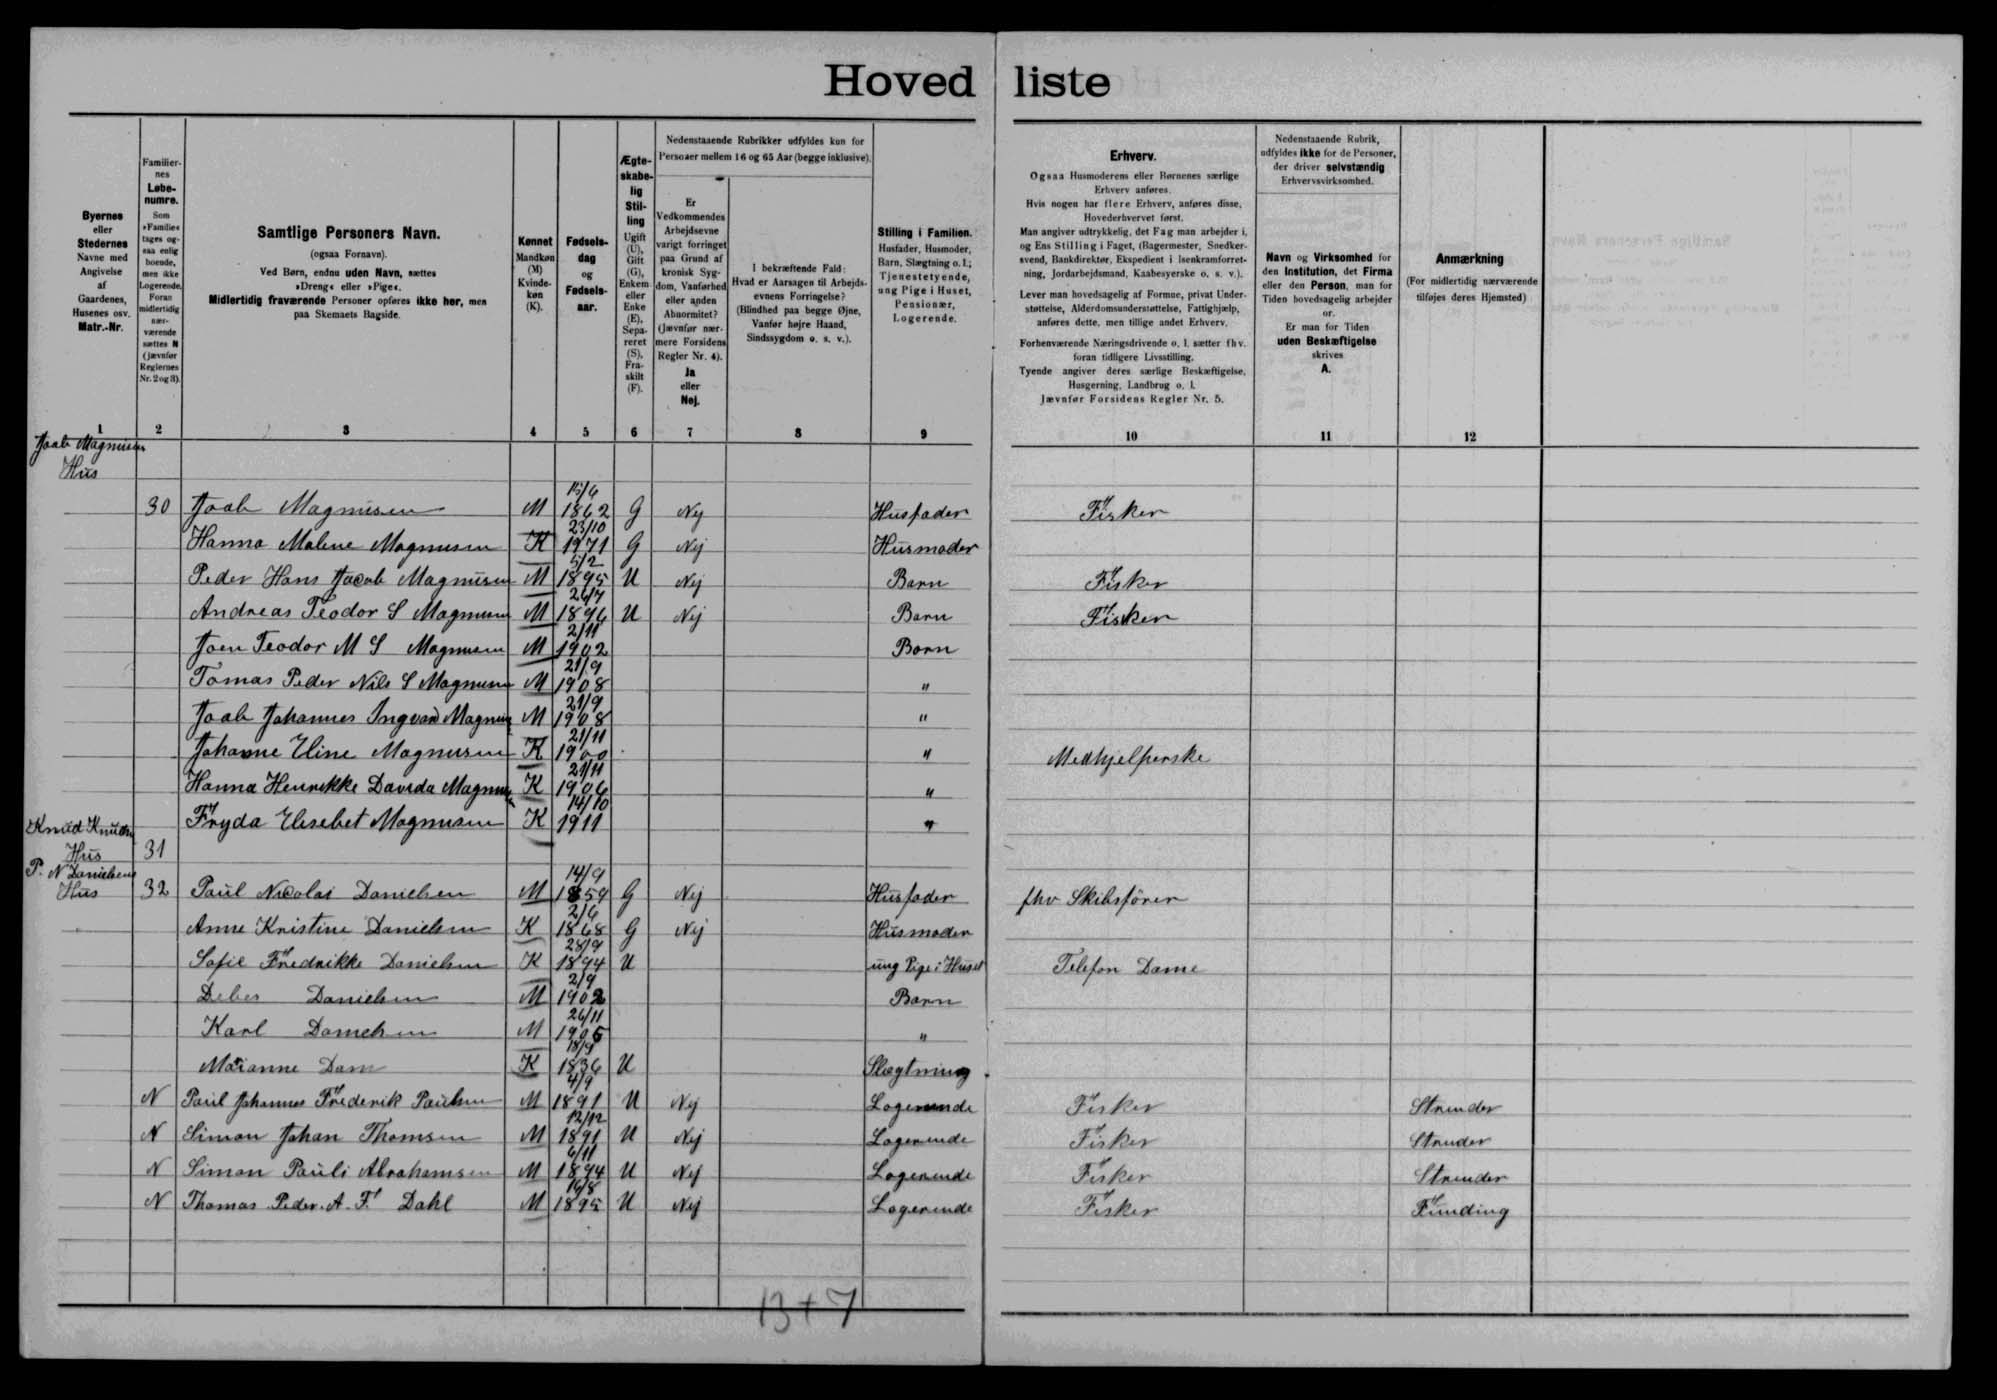 Hovedliste
Byernes eller Stedernes Navne med Angivelse af Gaardenes, Husenes osv. Matr.-Nr.
Familiernes Løbenumre. Som »Familie« tages ogsaa enlig boende, men ikke Logerende. Foran midlertidig nærværende sættes N (jævnfør Reglernes Nr. 2 og 3).
Samtlige Personers Navn.
(ogsaa Fornavn).
Ved Børn, endnu uden Navn, sættes
»Dreng« eller »Pige«.
Midlertidig fraværende Personer opføres ikke her, men
paa Skemaets Bagside.
Kønnet Mandkøn (M) Kvindekøn (K).
Fødselsdag og Fødselsaar.
Ægteskabelig Stilling Ugift (U), Gift (G), Enkem. eller Enke (E), Separeret (S), Fraskilt (F).
Nedenstaaende Rubrikker udfyldes kun for
Personer mellem 16 og 65 Aar (begge inklusive).
Er Vedkommendes Arbejdsevne varigt forringet paa Grund af kronisk Sygdom, Vanførhed eller anden Abnormitet? (Jævnfør nærmere Forsidens Regler Nr. 4). Ja eller Nej.
I bekræftende Fald: Hvad er Aarsagen til Arbejdsevnens Forringelse? (Blindhed paa begge Øjne, Vanfør højre Haand, Sindssygdom o. s. v.).
Stilling i Familien. Husfader, Husmoder, Barn, Slægtning o. l.; Tjenestetyende, ung Pige i Huset, Pensionær, Logerende.
Erhverv.
Ogsaa Husmoderens eller Børnenes særlige
Erhverv anføres.
Hvis nogen har flere Erhverv, anføres disse,
Hovederhvervet først.
Man angiver udtrykkelig, det Fag man arbejder i,
og Ens Stilling i Faget, (Bagermester, Snedker-
svend, Bankdirektør, Ekspedient i Isenkramforret-
ning, Jordarbejdsmand, Kaabesyerske o. s. v.).
Lever man hovedsagelig af Formue, privat Under-
støttelse, Alderdomsunderstøttelse, Fattighjælp,
anføres dette, men tillige andet Erhverv.
Forhenværende Næringsdrivende o. l. sætter fhv.
foran tidligere Livsstilling.
Tyende angiver deres særlige Beskæftigelse,
Husgerning, Landbrug o. l.
Jævnfør Forsidens Regler Nr. 5.
Nedenstaaende Rubrik,
udfyldes ikke for de Personer,
der driver selvstændig
Erhvervsvirksomhed.
Navn og Virksomhed for
den Institution, det Firma
eller den Person, man for
Tiden hovedsagelig arbejder
for.
Er man for Tiden
uden Beskæftigelse
skrives
A.
Anmærkning
(For midlertidig nærværende
tilføjes deres Hjemsted)
1 2 3 4 5 6 7 8 9 10 11 12
Jaab Magnusen
Hus
30 Jaab Magnusen M 15/6 1862 G Nej Husfader Fisker
Hanna Malene Magnusen K 23/10 1971 G Nej Husmoder
Peder Hans Jacob Magnusen M 5/2 1895 U Nej Barn Fisker
Andreas Teodor S Magnusen M 26/7 1896 U Nej Barn Fisker
Joen Teodor M S Magnusen M 2/11 1902 Barn
Tomas Peder Nils S Magnusen M 21/9 1908 "
Jaab Johannes Ingvard Magnusen M 21/9 1908 "
Johanne Eline Magnusen K 21/11 1900 " Medhjelperske
Hanna Henrikke Davida Magnusen K 21/11 1906 "
Fryda Elisebet Magnusen K 14/10 1911 "
Knud Knudsen
Hus 31
P. N Danielsens
Hus 32 Paul Nicolai Danielsen M 14/9 1859 G Nej Husfader fhv Skibsfører
Anne Kristine Danielsen K 2/6 1868 G Nej Husmoder
Sofie Fredrikke Danielsen K 28/9 1894 U ung Pige i Huset Telefon Dame
Debes Danielsen M 2/9 1902 Barn
Karl Danielsen M 26/11 1905 "
Marianne Dam K 18/9 1836 U Slægtning
N Paul Johannes Frederik Paulsen M 4/9 1891 U Nej Logerende Fisker Strender
N Simon Johan Thomsen M 12/12 1891 U Nej Logerende Fisker Strender
N Simon Pauli Abrahamsen M 6/11 1894 U Nej Logerende Fisker Strender
N Thomas Peder A. F. Dahl M 16/8 1895 U Nej Logerende Fisker Funding
13+7